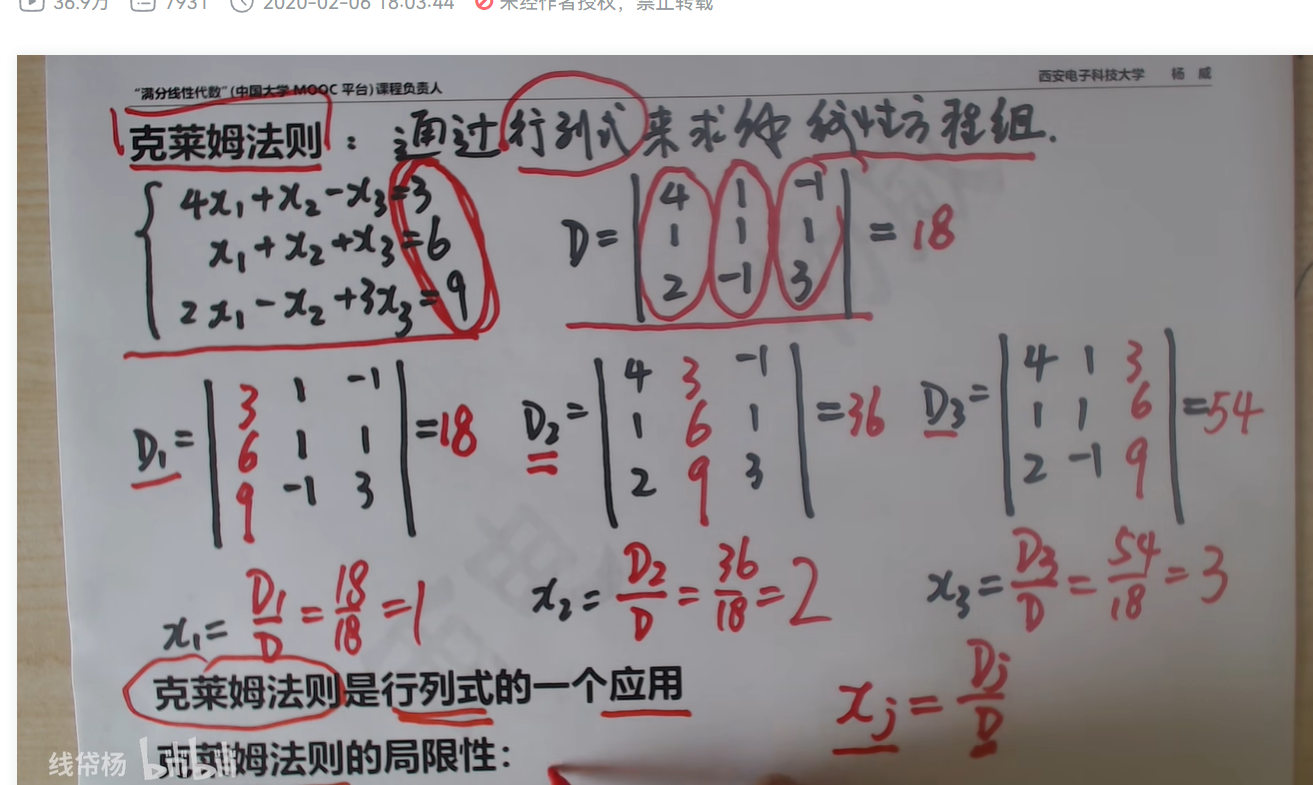 36.9万 7931 2020-02-06 18:03:44 未经作者授权，禁止转载
“满分线性代数”(中国大学MOOC平台)课程负责人
西安电子科技大学 杨 威
克莱姆法则：通过行列式来求解线性方程组.
4x₁+x₂-x₃=3
x₁+x₂+x₃=6
2x₁-x₂+3x₃=9
D=
4 1 -1
1 1 1
2 -1 3
=18
D₁=
3 1 -1
6 1 1
9 -1 3
=18
D₂=
4 3 -1
1 6 1
2 9 3
=36
D₃=
4 1 3
1 1 6
2 -1 9
=54
x₁=D₁/D=18/18=1
x₂=D₂/D=36/18=2
x₃=D₃/D=54/18=3
克莱姆法则是行列式的一个应用
xⱼ=Dⱼ/D
克莱姆法则的局限性：
线帒杨 bilibili